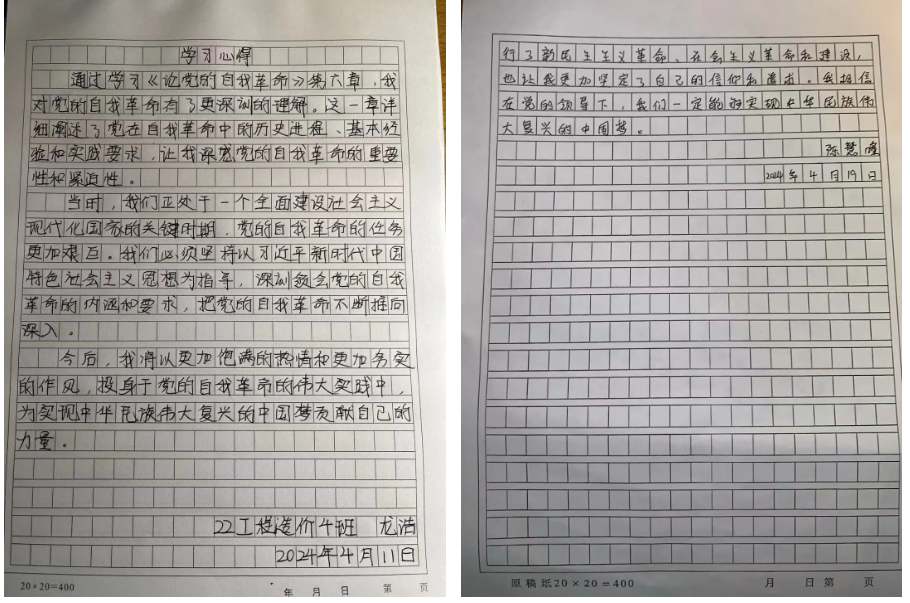 学习心得
通过学习《论党的自我革命》第六章，我
对党的自我革命有了更深刻的理解。这一章详
细阐述了党在自我革命中的历史进程、基本经
验和实践要求，让我深感党的自我革命的重要
性和紧迫性。
当时，我们正处于一个全面建设社会主义
现代化国家的关键时期，党的自我革命的任务
更加艰巨。我们必须坚持以习近平新时代中国
特色社会主义思想为指导，深刻领会党的自我
革命的内涵和要求，把党的自我革命不断推向
深入。
今后，我将以更加饱满的热情和更加务实
的作风，投身于党的自我革命的伟大实践中，
为实现中华民族伟大复兴的中国梦贡献自己的
力量。
22工程造价4班 龙浩
2024年4月11日
20×20=400
年 月 日 第 页
行了新民主主义革命、社会主义革命和建设，
也让我更加坚定了自己的信仰和追求。我相信
在党的领导下，我们一定能够实现中华民族伟
大复兴的中国梦。
陈慧隆
2024年4月19日
原稿纸20×20=400
月 日 第 页